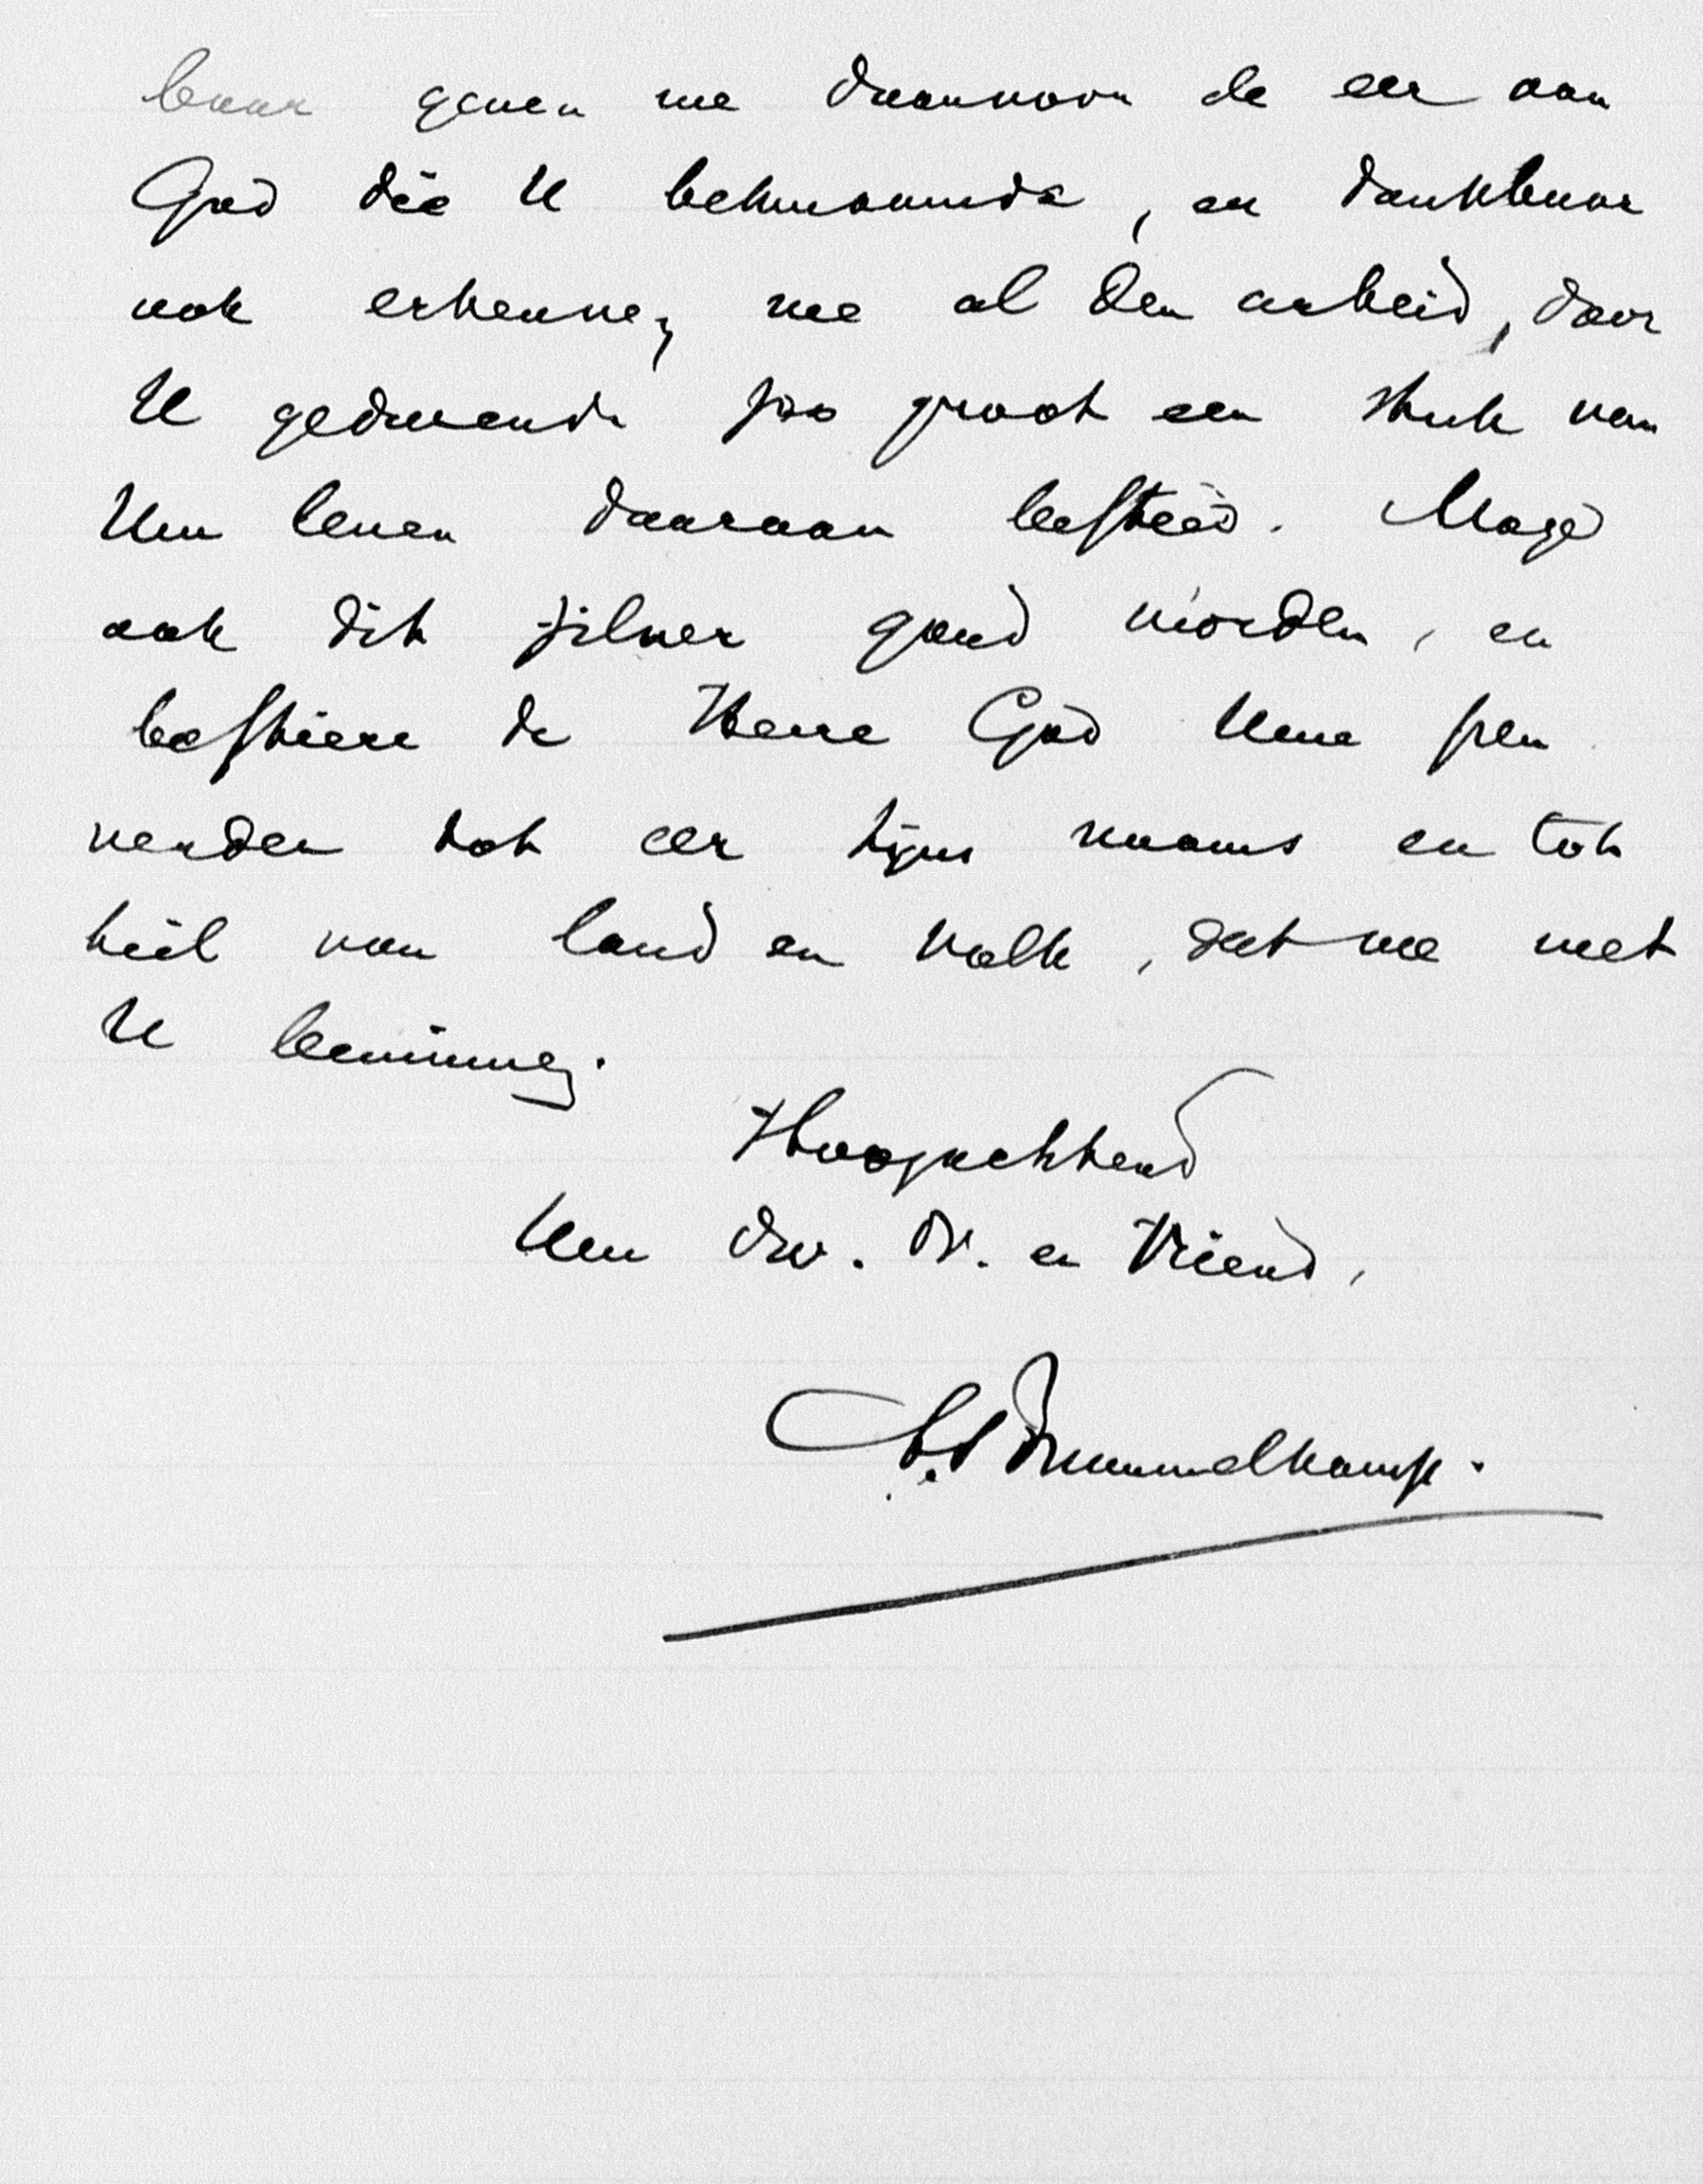 baar geven we daarvoor de eer aan
God die U bekwaamde, en dankbaar
ook erkennen we al den arbeid, door
U gedurende zoo groot een stuk van
Uw leven daaraan besteed. Moge
ook dit zilver goud worden, en
bestiere de Heere God Uwe pen
verder tot eer Zijns naams en tot
heil van land en volk, dat we met
U beminnen.
Hoogachtend
Uw dw. dr. en Vriend,
Drummelkamp.